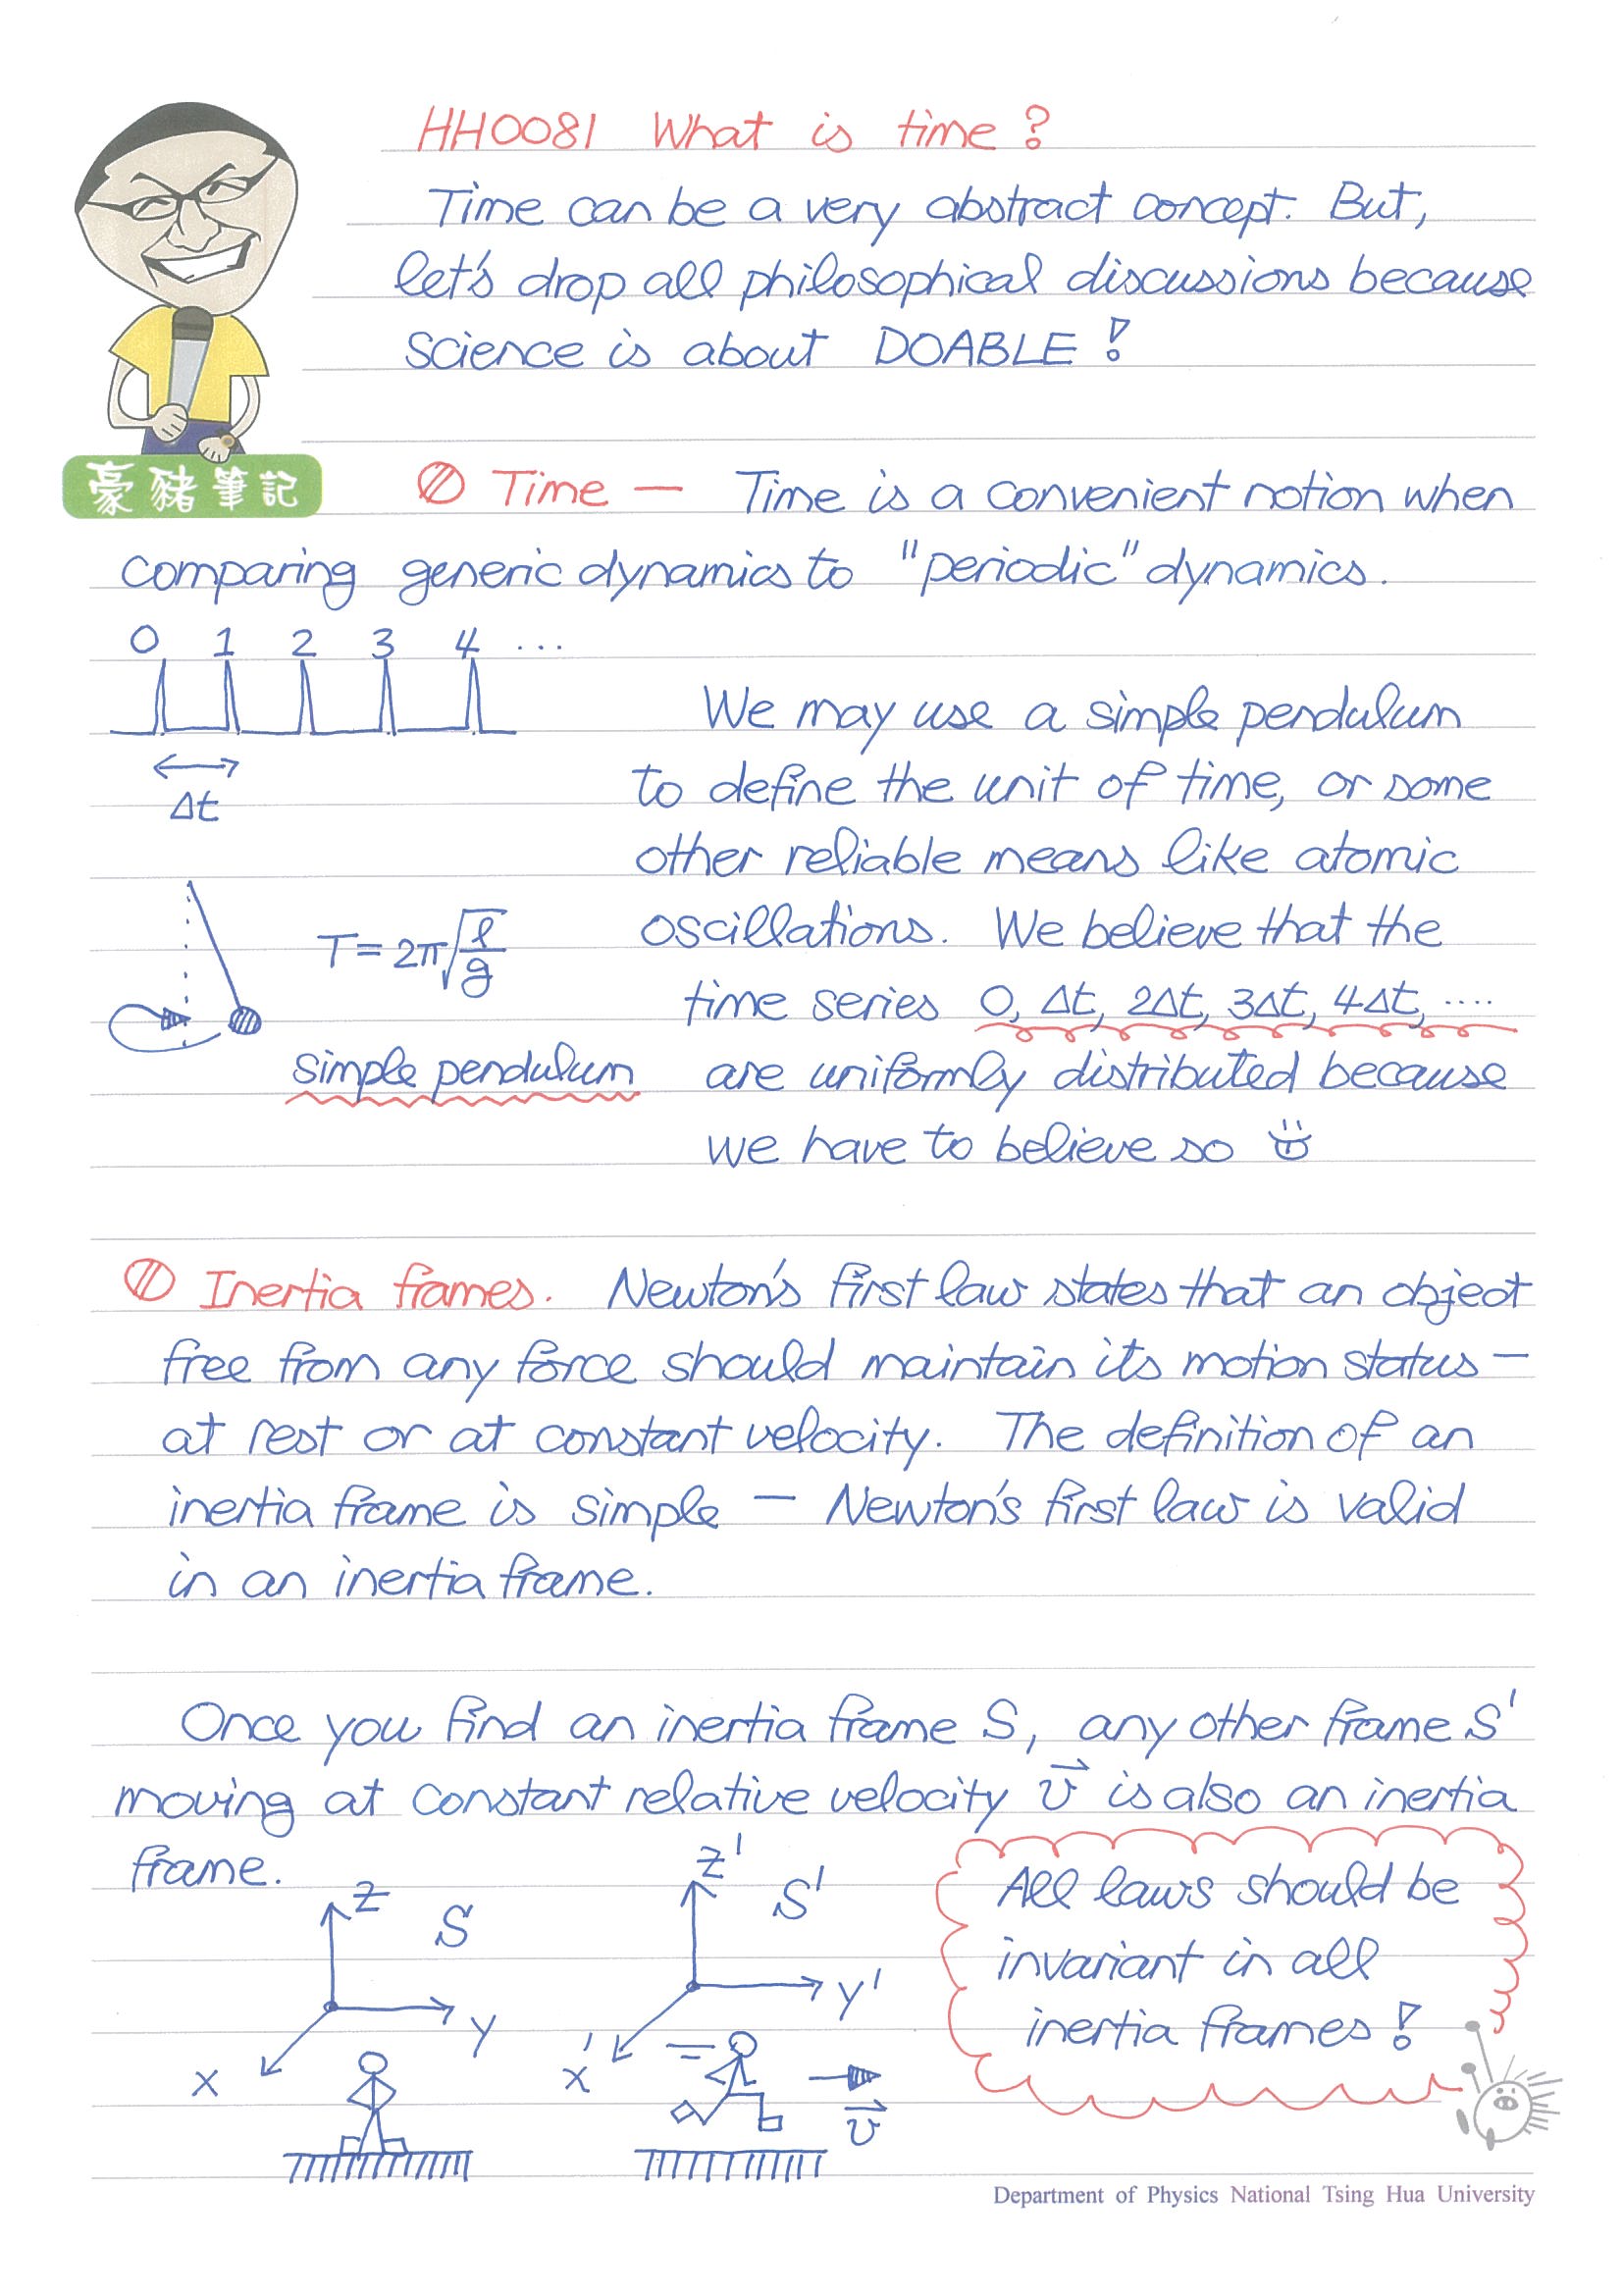 HH0081 What is time?
Time can be a very abstract concept. But,
let's drop all philosophical discussions because
science is about DOABLE!
豪豬筆記
Time — Time is a convenient notion when
comparing generic dynamics to "periodic" dynamics.
0 1 2 3 4 ...
Δt
We may use a simple pendulum
to define the unit of time, or some
other reliable means like atomic
oscillations. We believe that the
time series 0, Δt, 2Δt, 3Δt, 4Δt, ....
are uniformly distributed because
we have to believe so
T = 2π√(l/g)
simple pendulum
Inertia frames. Newton's first law states that an object
free from any force should maintain its motion status —
at rest or at constant velocity. The definition of an
inertia frame is simple — Newton's first law is valid
in an inertia frame.
Once you find an inertia frame S, any other frame S'
moving at constant relative velocity v⃗ is also an inertia
frame.
z S
y
x
z' S'
y'
x'
v⃗
All laws should be
invariant in all
inertia frames!
Department of Physics National Tsing Hua University